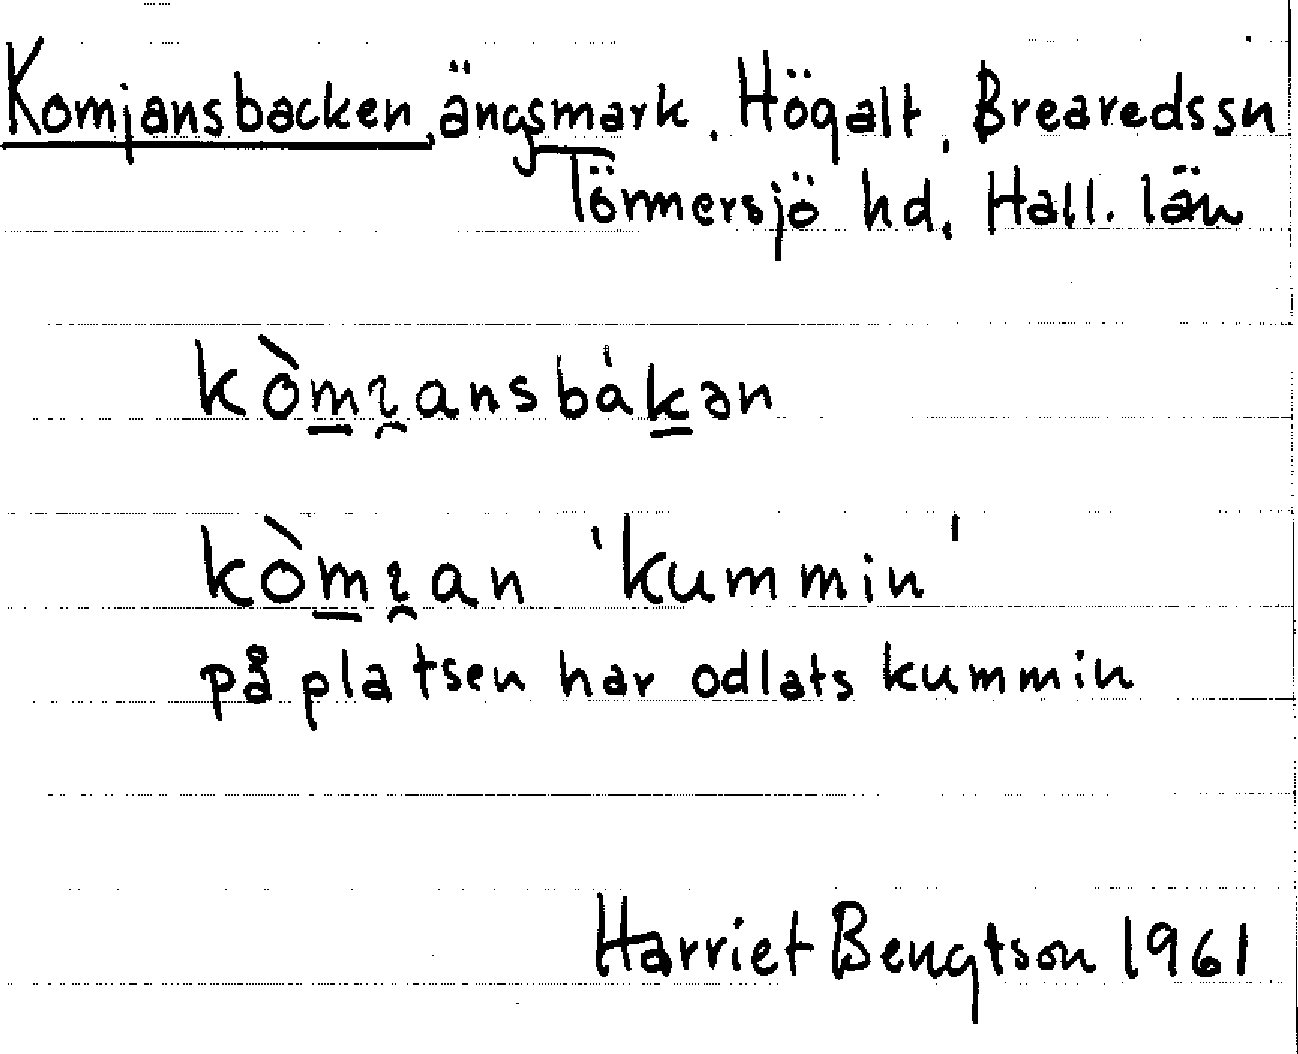 Komjansbacken, ängsmark. Högalt, Brearedssn
Tönnersjö hd, Hall. län
kòm̲ɩ̯ansbák̲ən
kòm̲ɩ̯an 'kummin'
på platsen har odlats kummin
Harriet Bengtson 1961